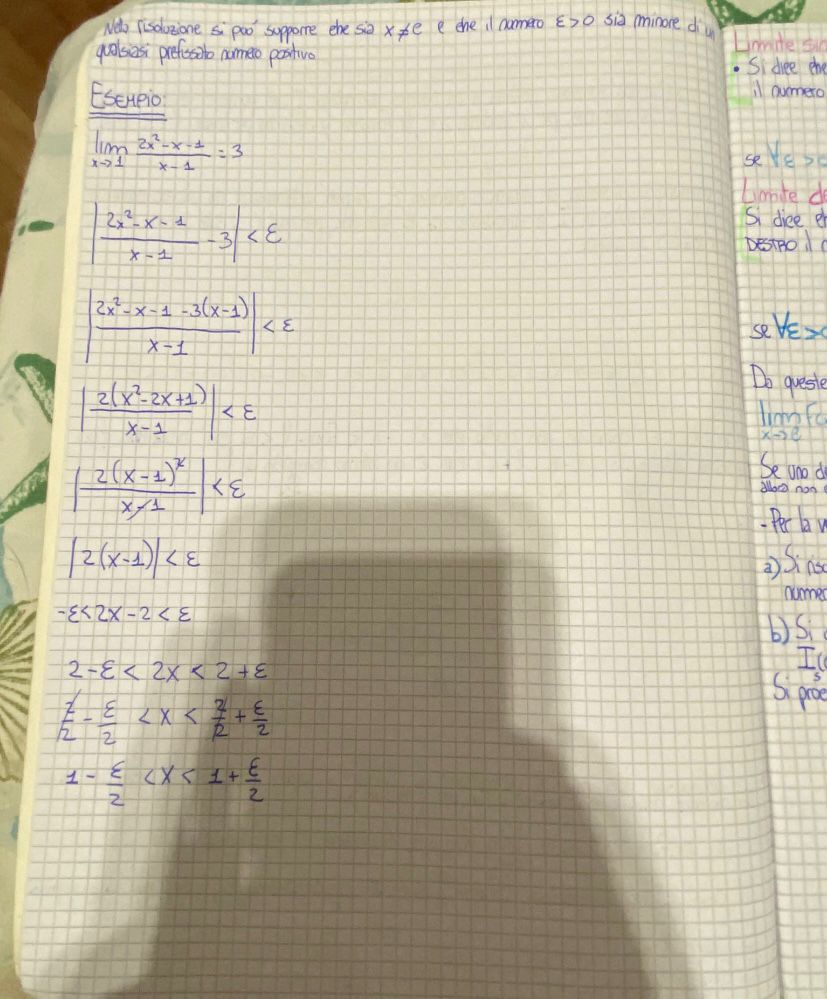 Nella risoluzione si può supporre che sia x ≠ c e che il numero ε>0 sia minore di un
qualsiasi prefissato numero positivo
ESEMPIO:
lim x→1 (2x²-x-1)/(x-1) = 3
|(2x²-x-1)/(x-1) - 3| < ε
|(2x²-x-1-3(x-1))/(x-1)| < ε
|2(x²-2x+1)/(x-1)| < ε
|2(x-1)²/(x-1)| < ε
|2(x-1)| < ε
-ε<2x-2<ε
2-ε < 2x < 2+ε
2/2 - ε/2 < x < 2/2 + ε/2
1 - ε/2 < x < 1 + ε/2
Limite
• Si dice che
il numero
se ∀ε>
Limite
Si dice
DESTRO il
se ∀ε>
Da queste
lim
x→c
Se uno
allora non
- Per la
a) Si
b) Si
Si